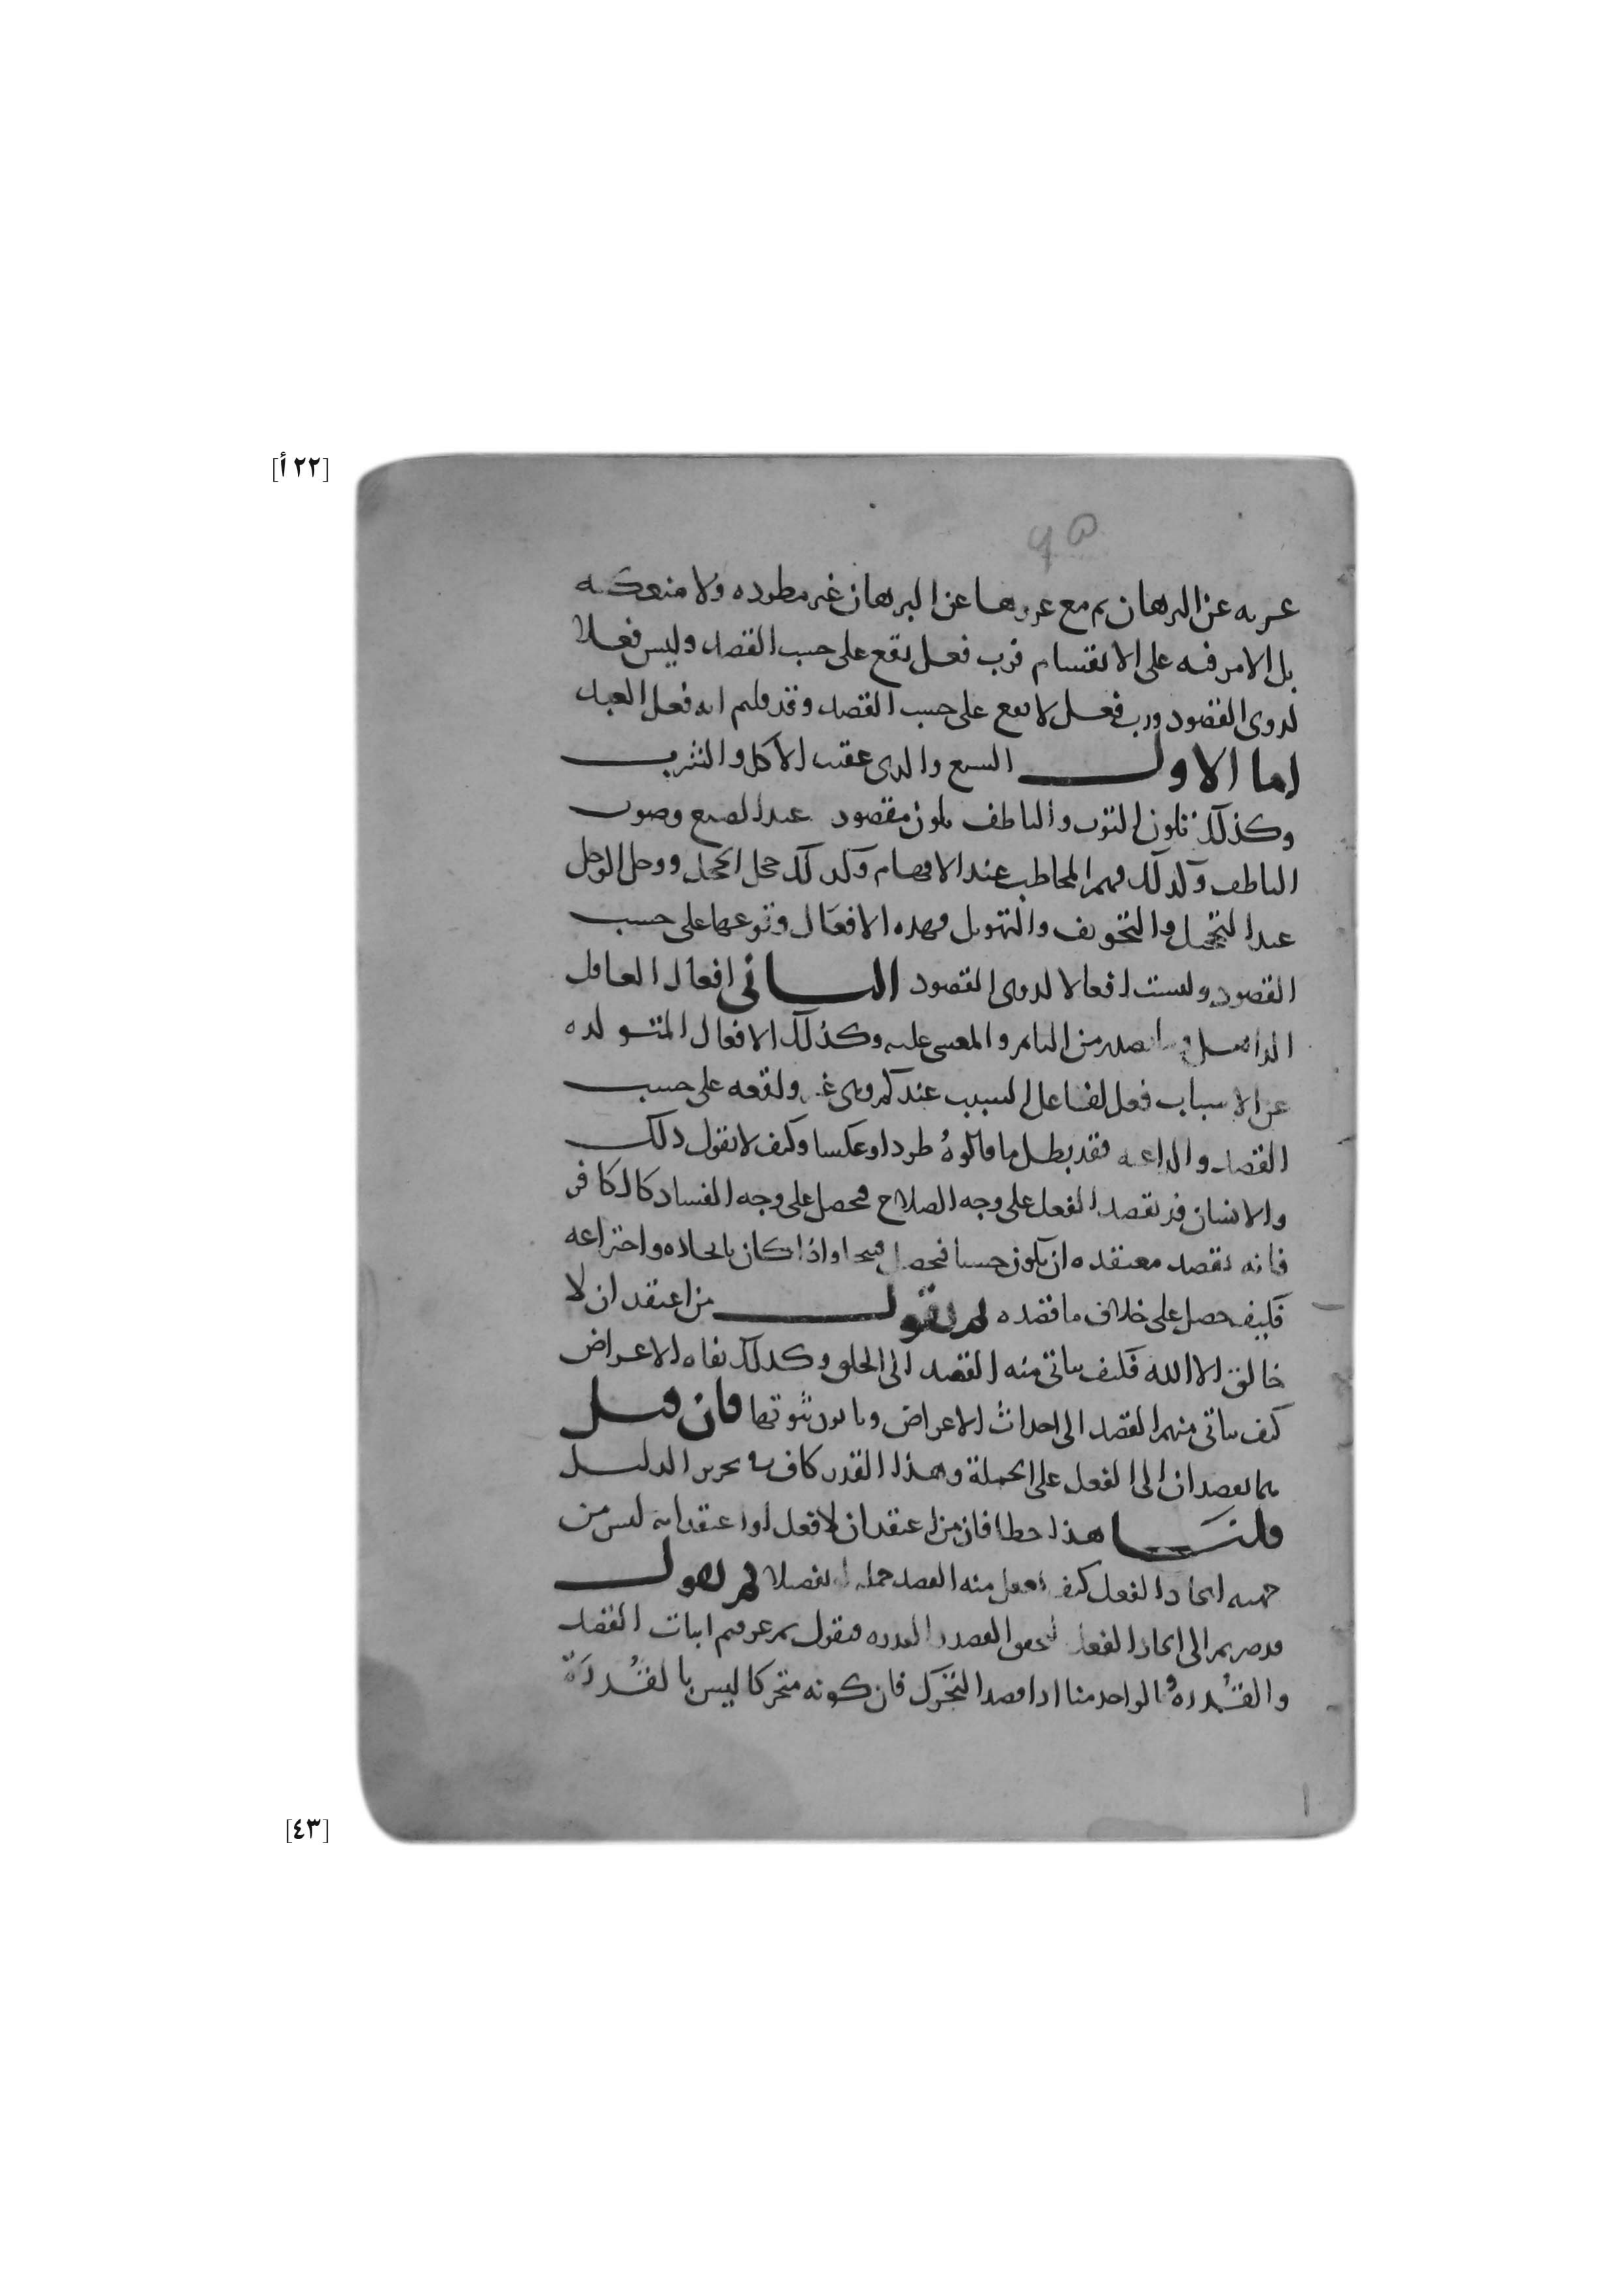 [٢٢ أ]
عريه عن البرهان ثم مع عروها عن البرهان غير مطرده ولا منعكسه
بل الامر فيه على الانقسام فرب فعل يقع على حسب القصد وليس فعلا
لذوي القصود ورب فعل لا يقع على حسب القصد وقد قلتم انه فعل العبد
اما الاول الشبع والري عقيب الاكل والشرب
وكذلك تلون الثوب والناطف يكون مقصود عند الصبغ وضرب
الناطف وكذلك فهم المخاطب عند الافهام وكذلك خجل الخجل ووجل الوجل
عند التخجيل والتخويف والتهويل فهذه الافعال وقوعها على حسب
القصود وليست افعالا لذوي القصود الثاني افعال الغافل
الذاهل وما يصدر من النائم والمغشي عليه وكذلك الافعال المتولده
عن الاسباب فعل لفاعل السبب عندكم وهي غير واقعه على حسب
القصد والداعيه فقد بطل ما قالوهُ طردا وعكسا وكيف لا نقول ذلك
والانسان قد يقصد الفعل على وجه الصلاح فيحصل على وجه الفساد كالكافر
فانه يقصد معتقده ان يكون حسنا فيحصل قبيحا واذا كان بايجاده واختراعه
فكيف حصل على خلاف ما قصده ثم نقول من اعتقد ان لا
خالق الا الله فكيف يتاتى منه القصد الى الخلق وكذلك نفاه الاعراض
كيف يتاتى منهم القصد الى احداث الاعراض وما يرون ثبوتها فان قيل
هما يقصدان الى الفعل على الجملة وهذا القدر كاف في تحرير الدليل
قلنا هذا خطا فان من اعتقد ان لا فعل او اعتقد انه ليس من
جهته ايجاد الفعل كيف يعقل منه القصد جملة او تفصيلا ثم نقول
قد صرتم الى ايجاد الفعل لتحقق القصد والقدره فنقول بم عرفتم اثبات القصد
والقُدره والواحد منا اذا قصد التحرك فان كونه متحركا ليس بالقُدرَة
[٤٣]